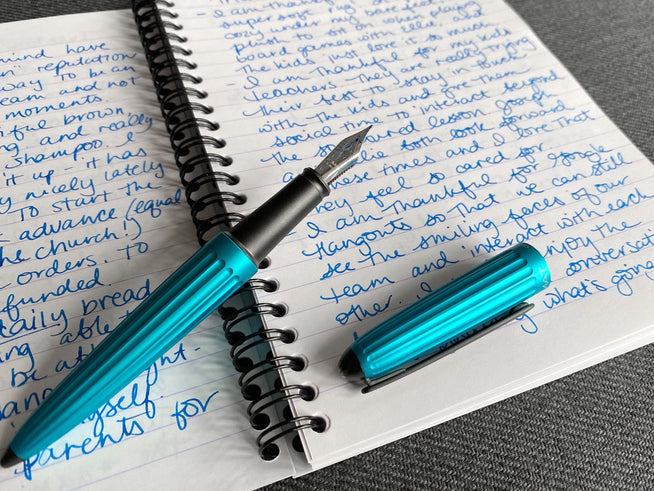 mind have
reputation
way to be an
team and not
moments
brown
and really
shampoo. I
it up - it has
nicely lately
To start the
advance (equal
the church!)
orders. To
funded.
daily bread
able
be
myself.
parents for
- I am thankful
super soft
cozy under my
plush to sit on when playing
board games with Ellie and
the kids just love so much.
I am thankful for my kids
teachers. They are really trying
their best to stay in touch
with the kids and give them
social time to interact beyond
the lesson google
both look forward
these times and I love that
they feel so cared for.
I am thankful for Google
Hangouts so that we can still
see the smiling faces of our
team and interact with each
other. I enjoy the
conversati
what's going